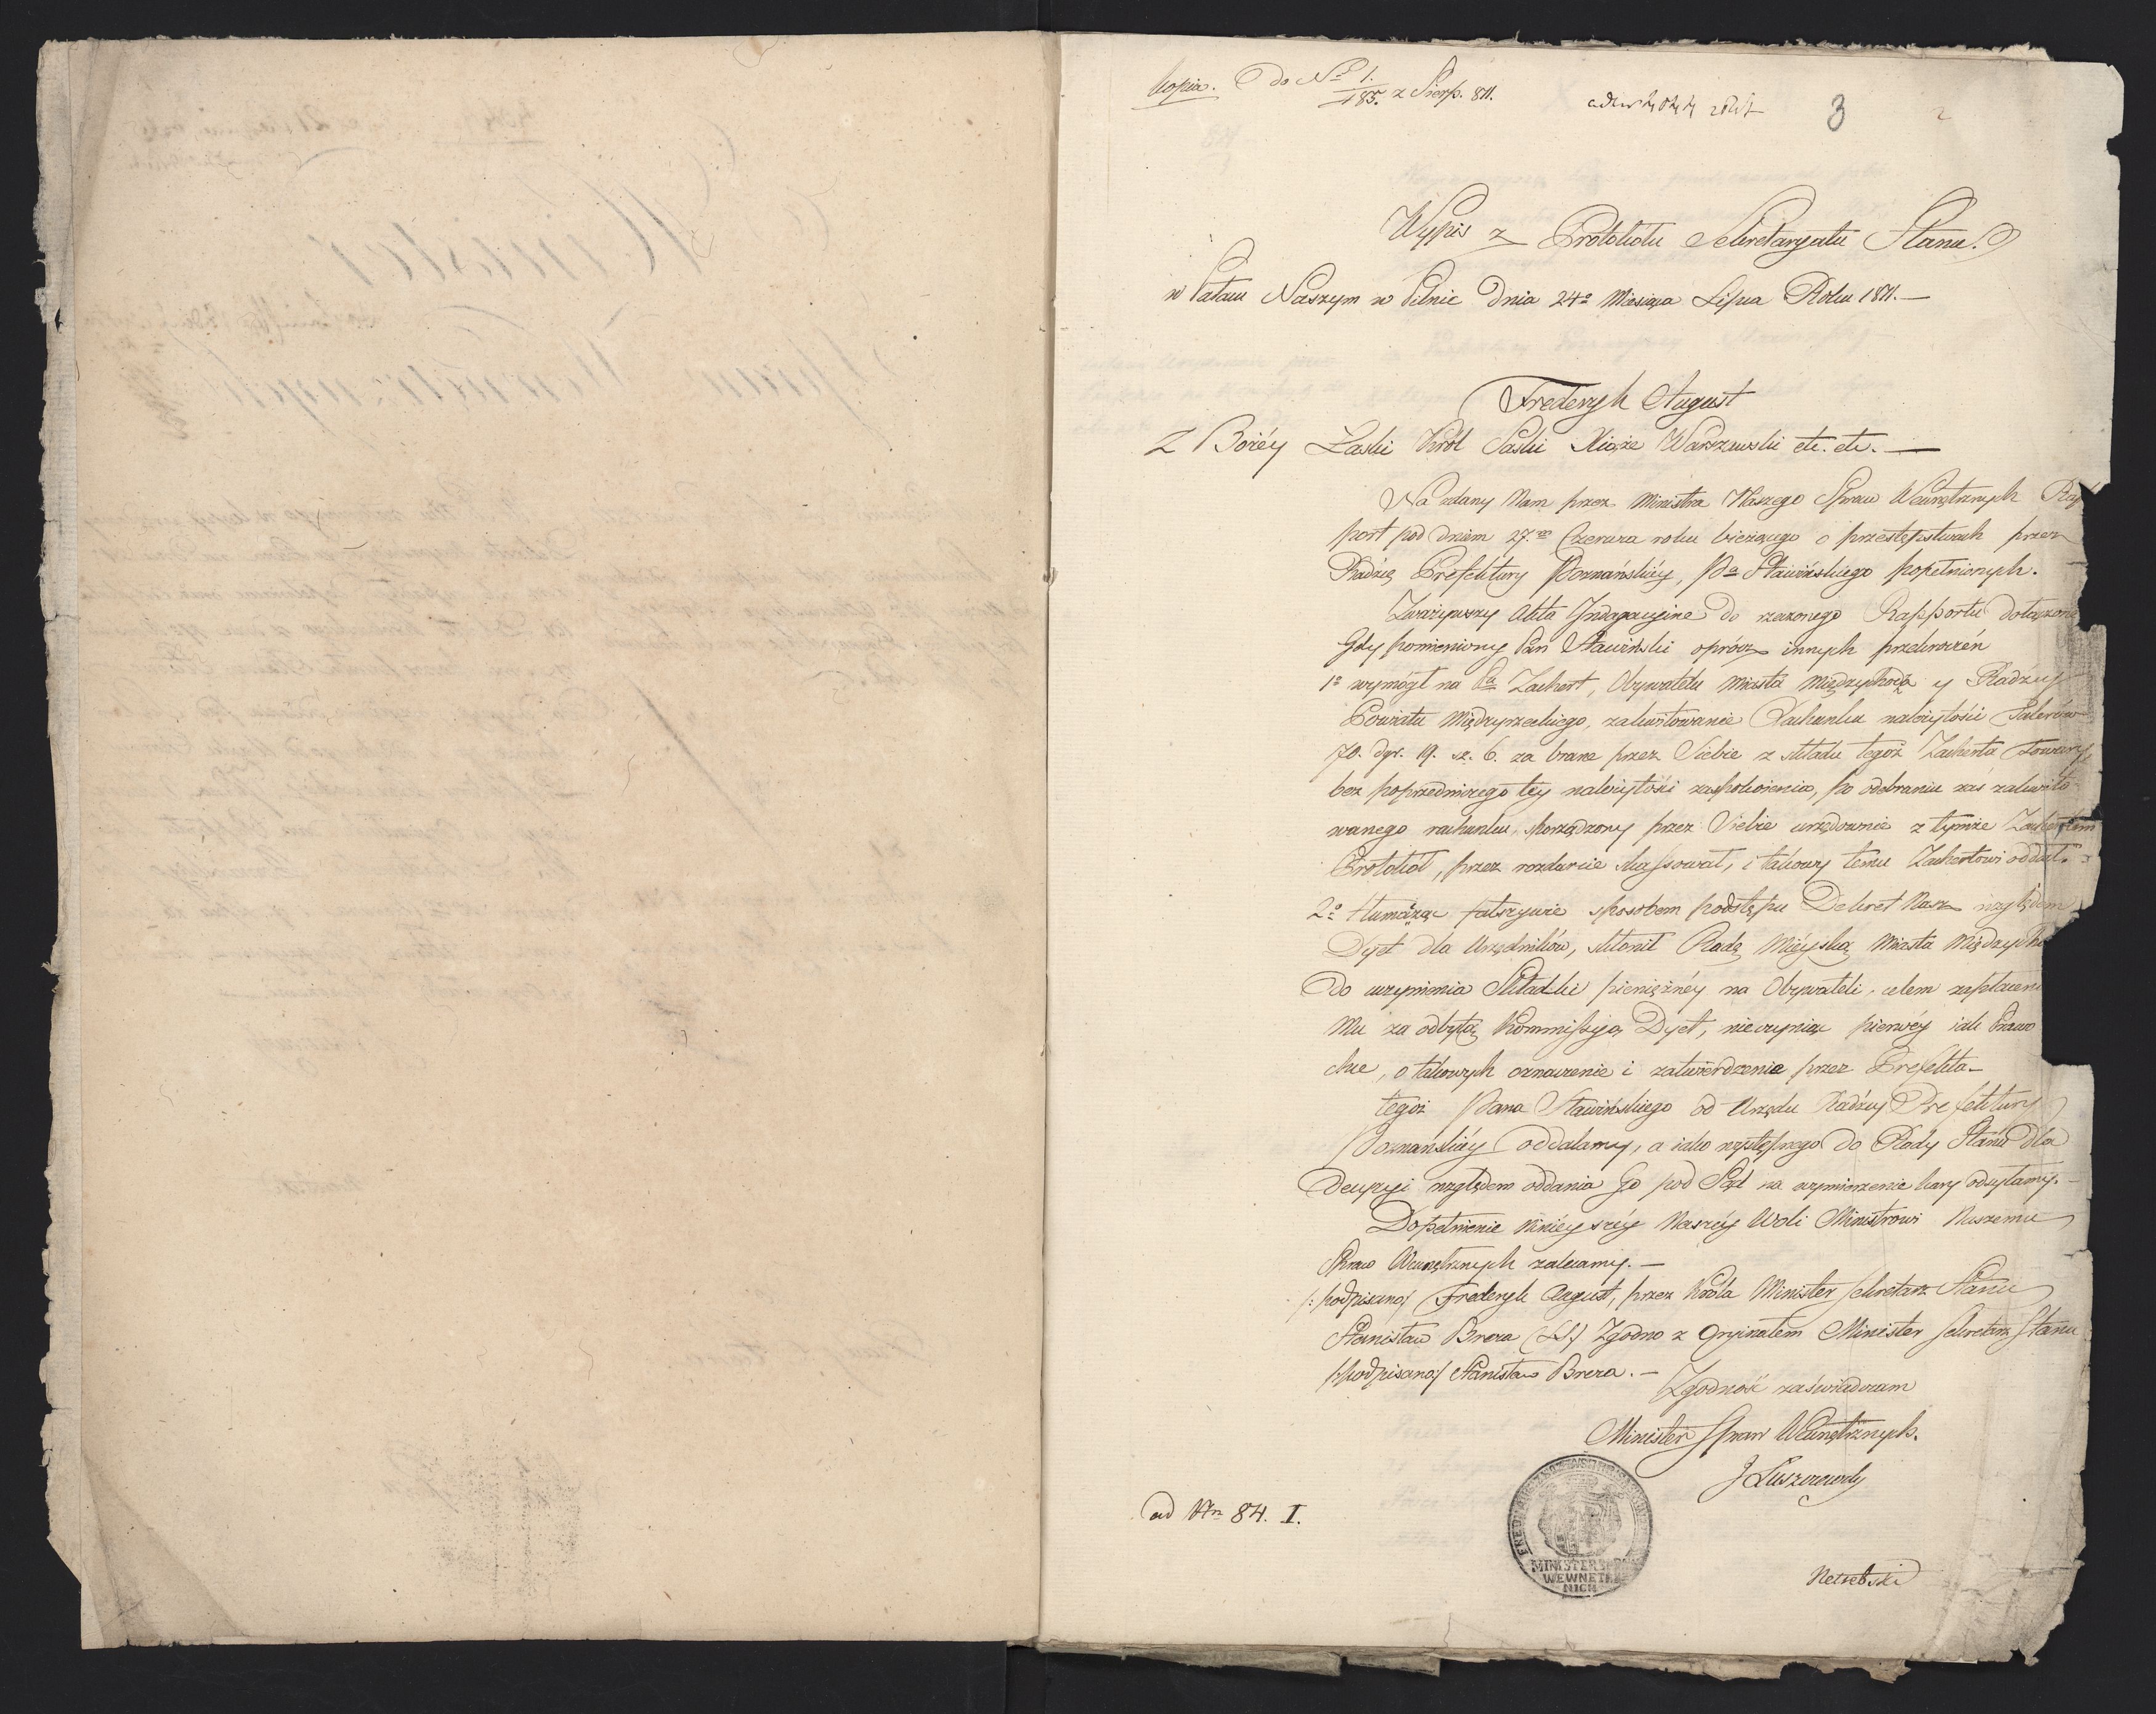 Kopia. do Nro 1.
185. z Sierp. 811.
3
Wypis z Protokołu Sekretaryatu Stanu.
w Pałacu Naszym w Pilnic Dnia 24o Miesiąca Lipca Roku 1811. —
Frederyk August
Z Bożéy Łaski Król Saski Xiąże Warszawski etc. etc. —
Na zdany Nam przez Ministra Naszego Spraw Wewnętrznych Rap
port pod dniem 27.mo Czerwca roku bieżącego o przestępstwach przez
Radzcę Prefektury Poznańskiéy, Pa Stawińskiego popełnionych.
Zważywszy Akta Indagacyine do rzeczonego Rapportu dołączone
Gdy pomieniony Pan Stawiński oprócz innych przekroczéń
1o wymógł na Pa Zachert, Obywatelu Miasta Międzychoda y Radzcy
Powiatu Międzyrzeckiego, zakwitowanie Rachunku należytości Talerów
70. dgr. 19. sz. 6. za brane przez Siebie z składu tegoż Zacherta towary,
bez poprzedniczego téy należytości zaspokoienia, po odebraniu zaś zakwito-
wanego rachunku, sporządzony przez Siebie urzędownie z tymże Zachertem
Protokół, przez rozdarcie skassował, i takowy temu Zachertowi oddał.
2o tłumacząc fałszywie sposobem podstępu Dekret Nasz względem
Dyet dla Urzędników, skłonił Radę Mieyską Miasta Międzycho
do uczynienia Składki pieniężnéy na Obywateli, celem zapłaceni
Mu za odbytą Kommissyą Dyet, nieczyniąc pierwéy iak Prawo
chce, o takowych oznaczenie i zatwierdzenie przez Prefekta —
tegoż Pana Stawińskiego od Urzędu Radzcy Prefektury
Poznańskiéy oddalamy, a iako występnego do Rady Stanu dla
decyzyi względem oddania Go pod Sąd na wymierzenie kary odsyłamy. —
Dopełnienie ninieyszéy Naszéy Woli Ministrowi Naszemu
Spraw Wewnętrznych zalecamy. —
/: podpisano/ Frederyk August, przez Króla Minister Sekretarz Stanu
Stanisław Breza (LS) Zgodno z Oryginałem Minister Sekretarz Stanu
/:podpisano:/ Stanisław Breza. —
Zgodność zaświadczam
Minister Spraw Wewnętrznych.
J Łuszczewski
ad Nrm 84. I.
MINISTER SPR
WEWNĘTRZ
NICH